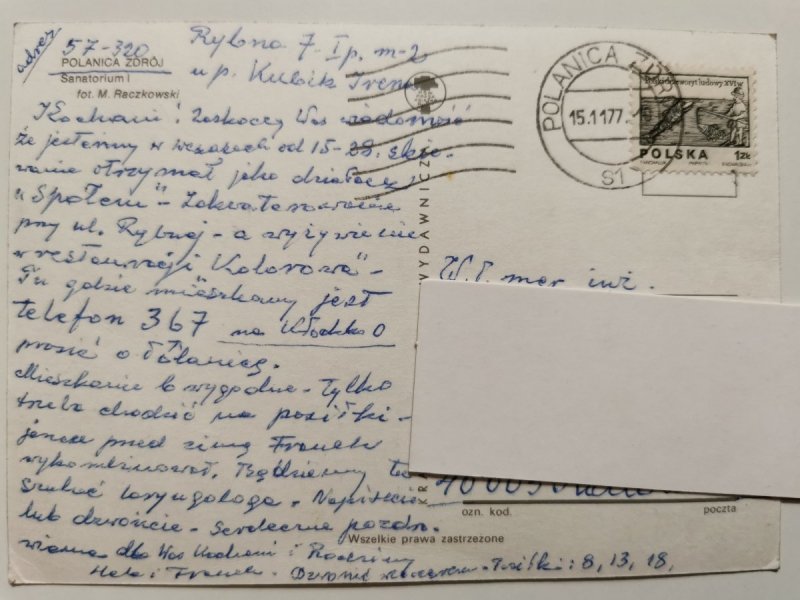 adres
57-320 Rybna 7 I p. m-2
POLANICA ZDRÓJ
u p. Kubik Irena
Sanatorium I
fot. M. Raczkowski
Kochani! Zaskoczy Was wiadomość
że jesteśmy w wczasach od 15-28. skie-
rowanie otrzymał jako działacz
"Społem" - Zakwaterowanie
przy ul. Rybnej - a wyżywienie
w restauracji Kolorowa" -
Tu gdzie mieszkamy jest
telefon 367 na Kłodzko
prosić o Polanicę.
Mieszkanie b. wygodne - tylko
trzeba chodzić na posiłki -
jeszcze przed zimą Franek
wykombinował. Będziemy też
szukać laryngologa. Napiszcie
lub dzwońcie - Serdeczne pozdro-
wienia dla Was Kochani i Rodziny
Hela i Franek. Dzwonić wieczorem - Posiłki: 8, 13, 18.
WYDAWNICZ
POLANICA ZDRÓJ
15.1177
S1
Polski drzeworyt ludowy XVI w.
POLSKA 1 ZŁ
W.P. mgr inż.
ozn. kod.
poczta
Wszelkie prawa zastrzeżone